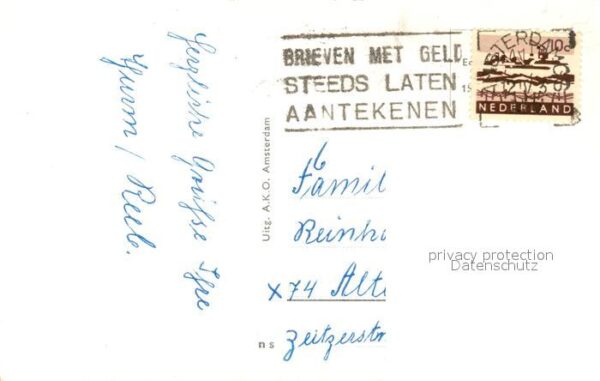 Herzliche Grüße Ihre
BRIEVEN MET GELD
STEEDS LATEN
AANTEKENEN
10c
AMSTERDAM
NEDERLAND
Uitg. A.K.O. Amsterdam
Famil
Reinho
x 74 Alte
Zeitzerstr
ns
privacy protection
Datenschutz